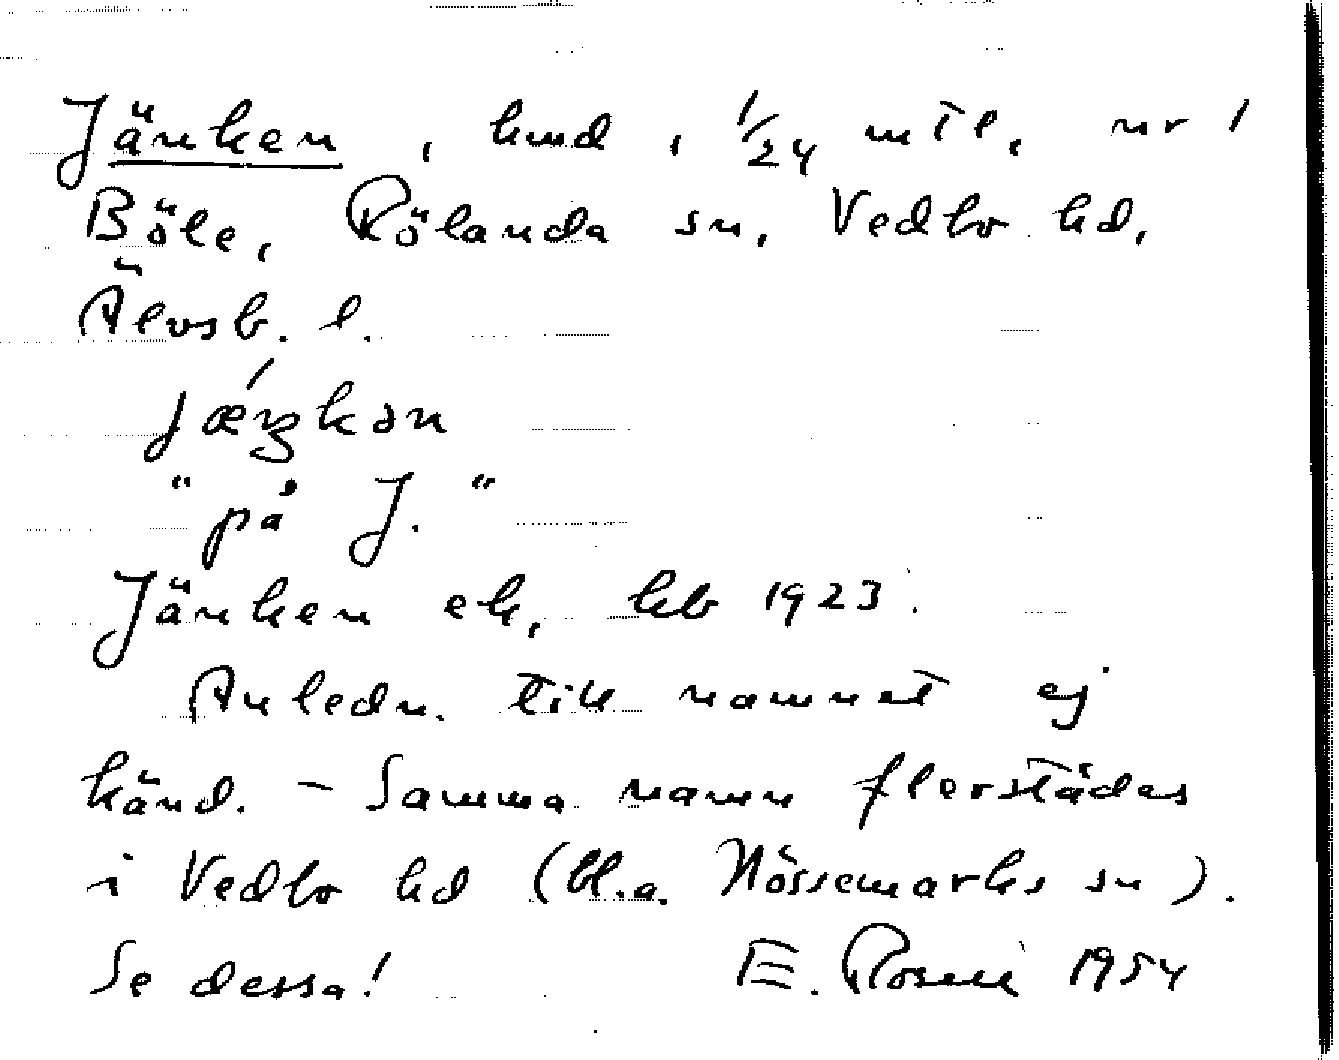 Jänken, hmd, 1/24 mtl, nr 1
Böle, Rölanda sn, Vedbo hd,
Älvsb. l.
"på J."
Jänken ek, kb 1923.
Anledn. till namnet ej
känd. – Samma namn flerstädes
i Vedbo hd (bl.a. Nössemarks sn).
Se dessa! E. Rosell 1954